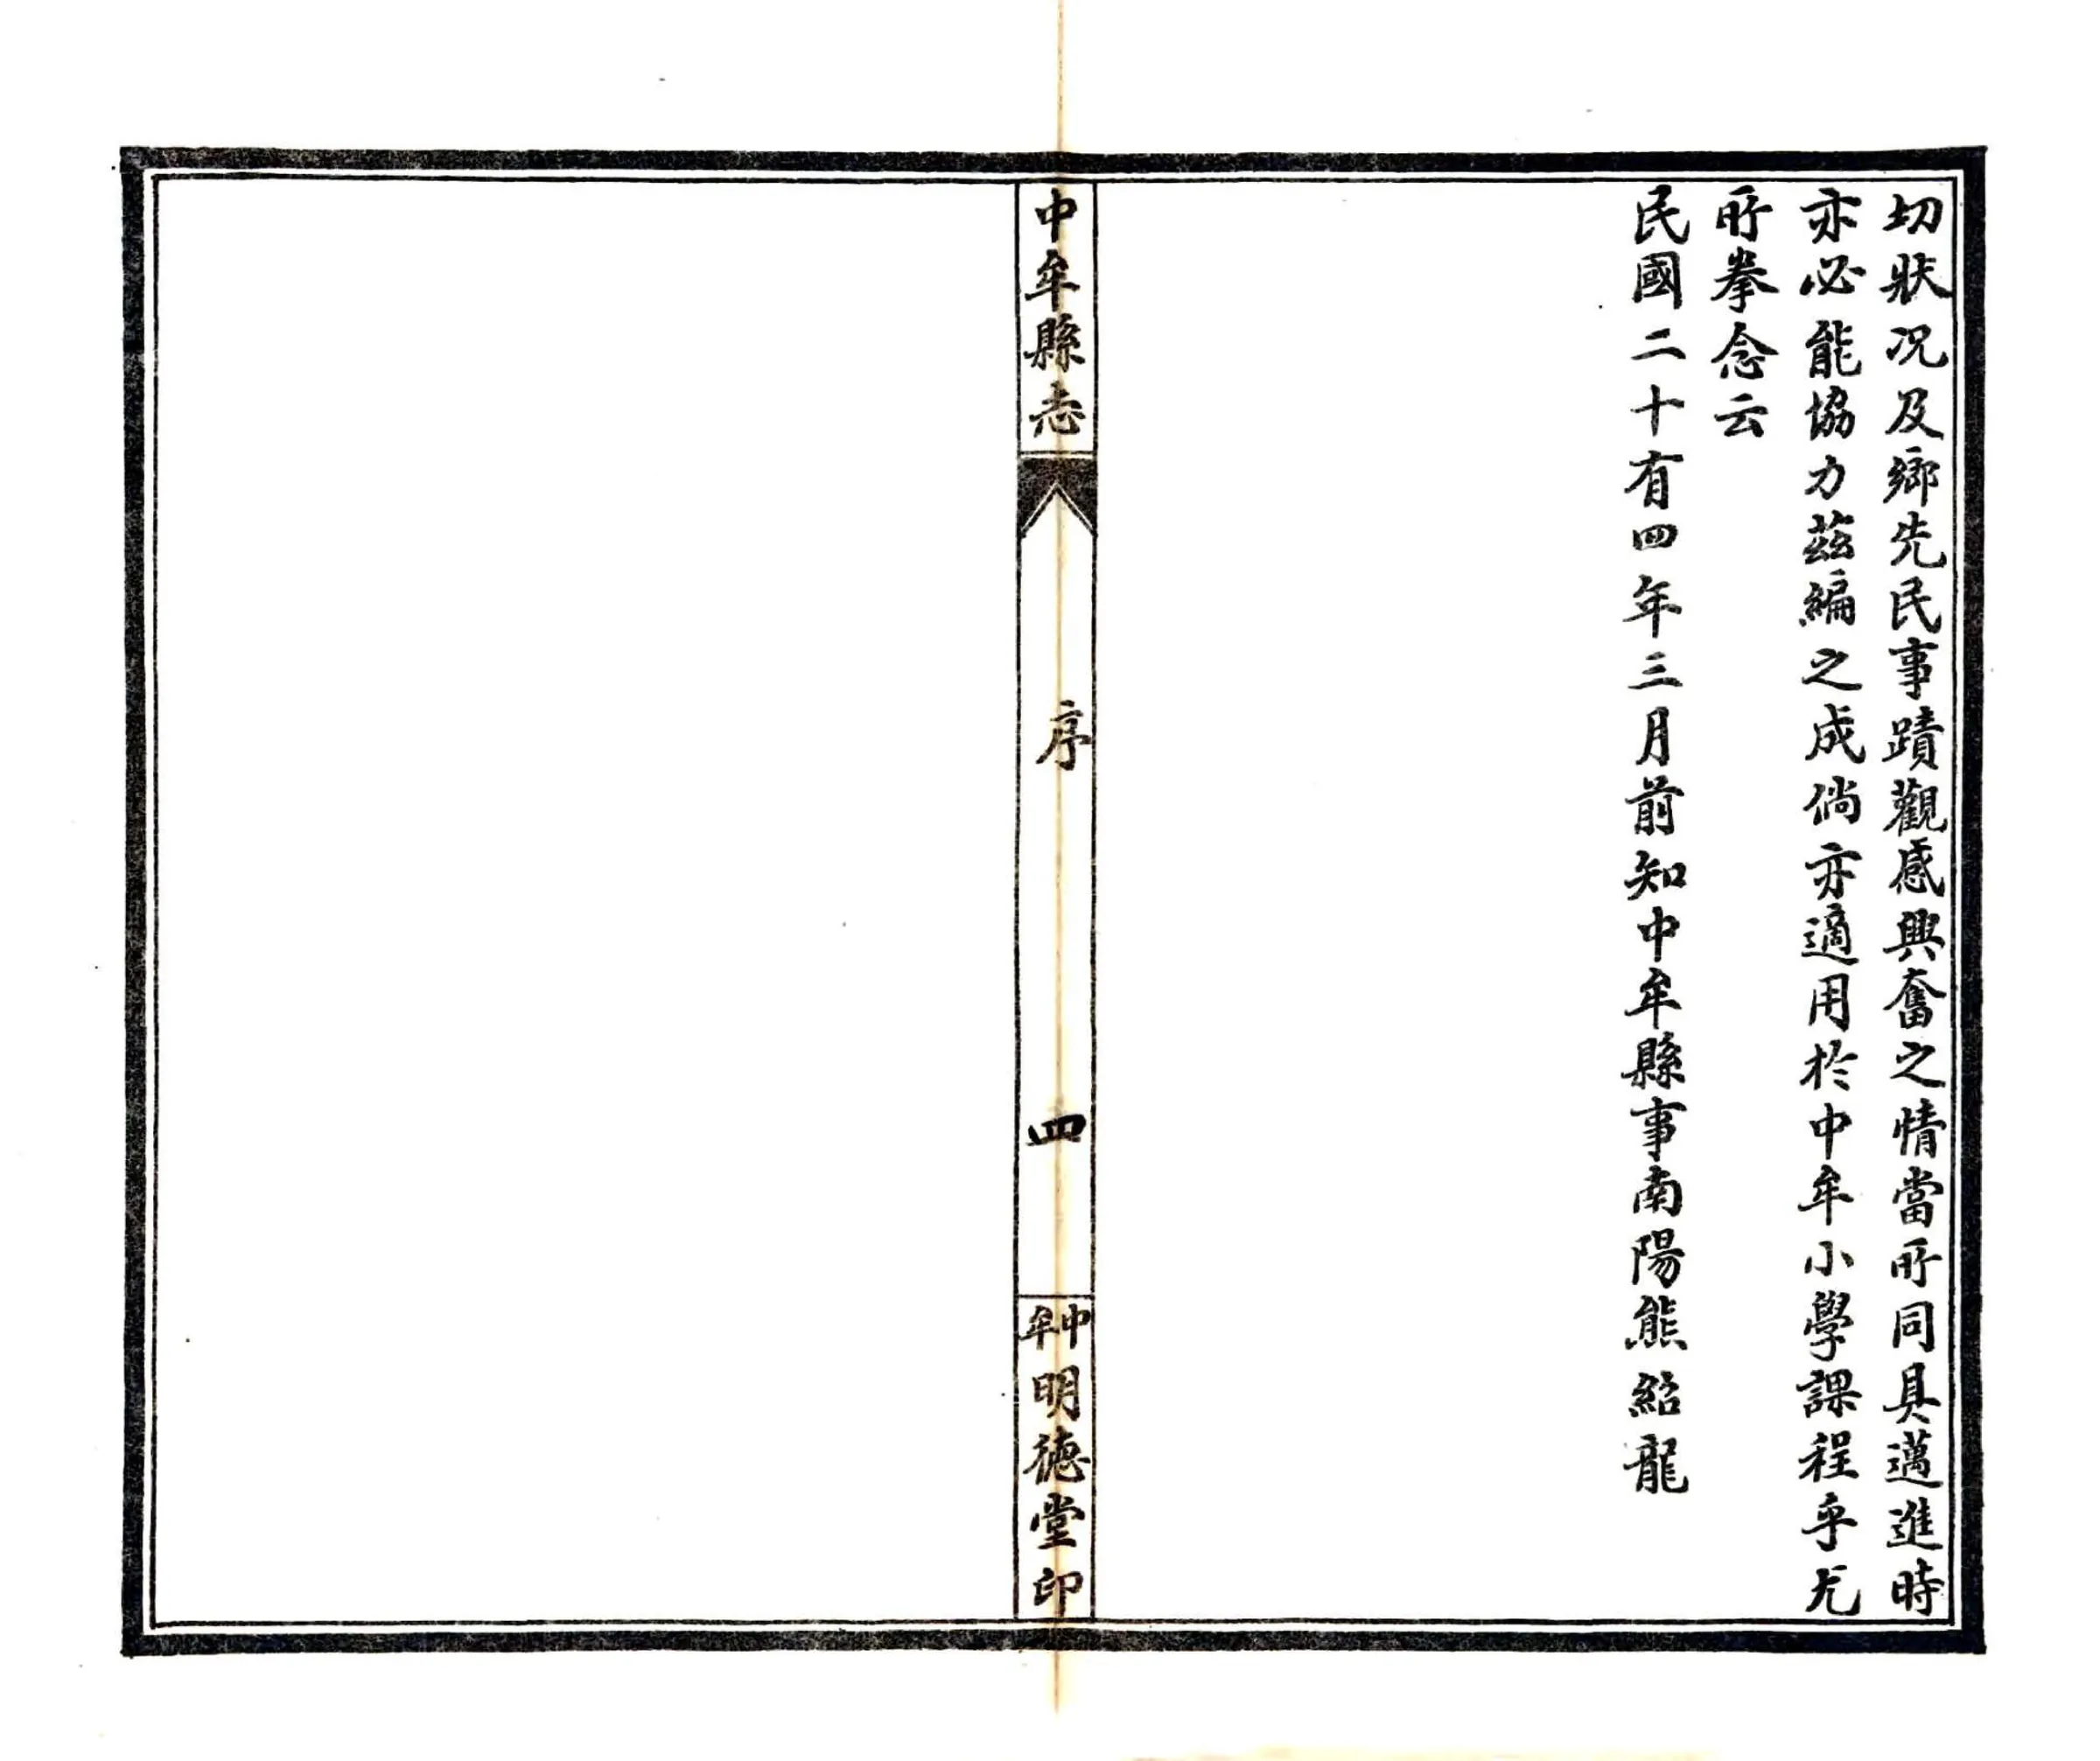 切狀况及鄉先民事蹟觀感興奮之情當所同具邁進時
亦必能協力茲編之成倘亦適用於中牟小學課程乎尤
所拳念云
民國二十有四年三月前知中牟縣事南陽熊紹龍
中牟縣志
序
四
中牟明德堂印